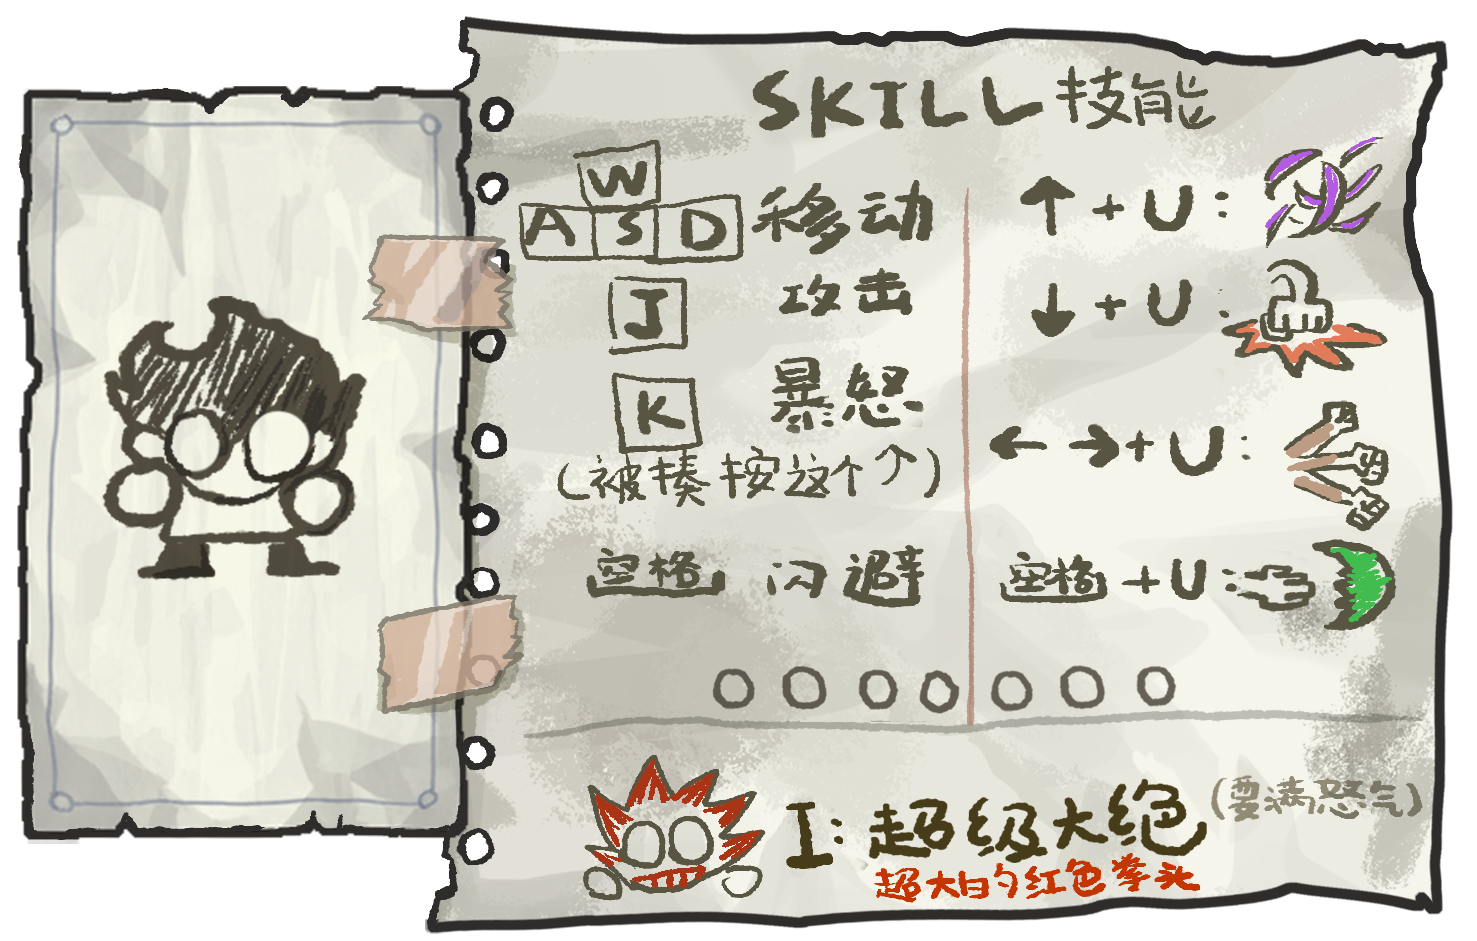 SKILL 技能
W
A S D 移动
J 攻击
K 暴怒
(被揍按这个个)
空格 闪避
↑+U:
↓+U:
← →+U:
空格+U:
I:超级大绝(要满怒气)
超大的红色拳头